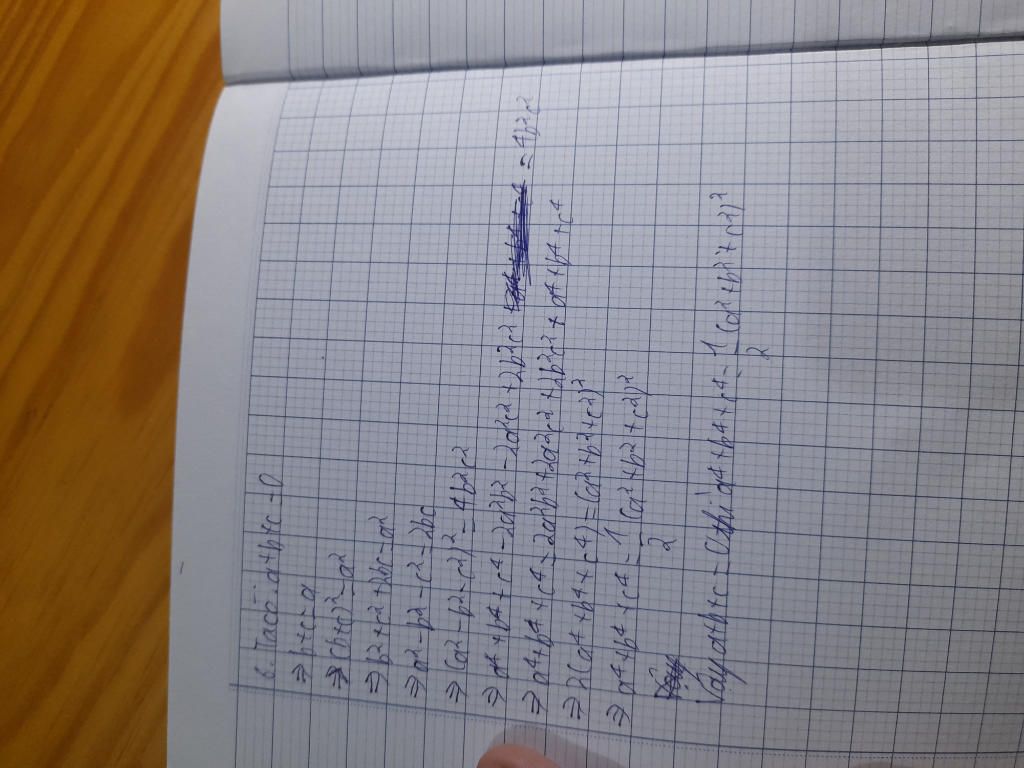 6. Ta có: a+b+c=0
⇒ b+c=-a
⇒ (b+c)²=a²
⇒ b²+c²+2bc=a²
⇒ a²-b²-c²=2bc
⇒ (a²-b²-c²)²=4b²c²
⇒ a⁴+b⁴+c⁴-2a²b²-2a²c²+2b²c²=4b²c²
⇒ a⁴+b⁴+c⁴=2a²b²+2a²c²+2b²c²+a⁴+b⁴+c⁴
⇒ 2(a⁴+b⁴+c⁴)=(a²+b²+c²)²
⇒ a⁴+b⁴+c⁴=1/2(a²+b²+c²)²
Vậy a+b+c=0 thì a⁴+b⁴+c⁴=1/2(a²+b²+c²)²